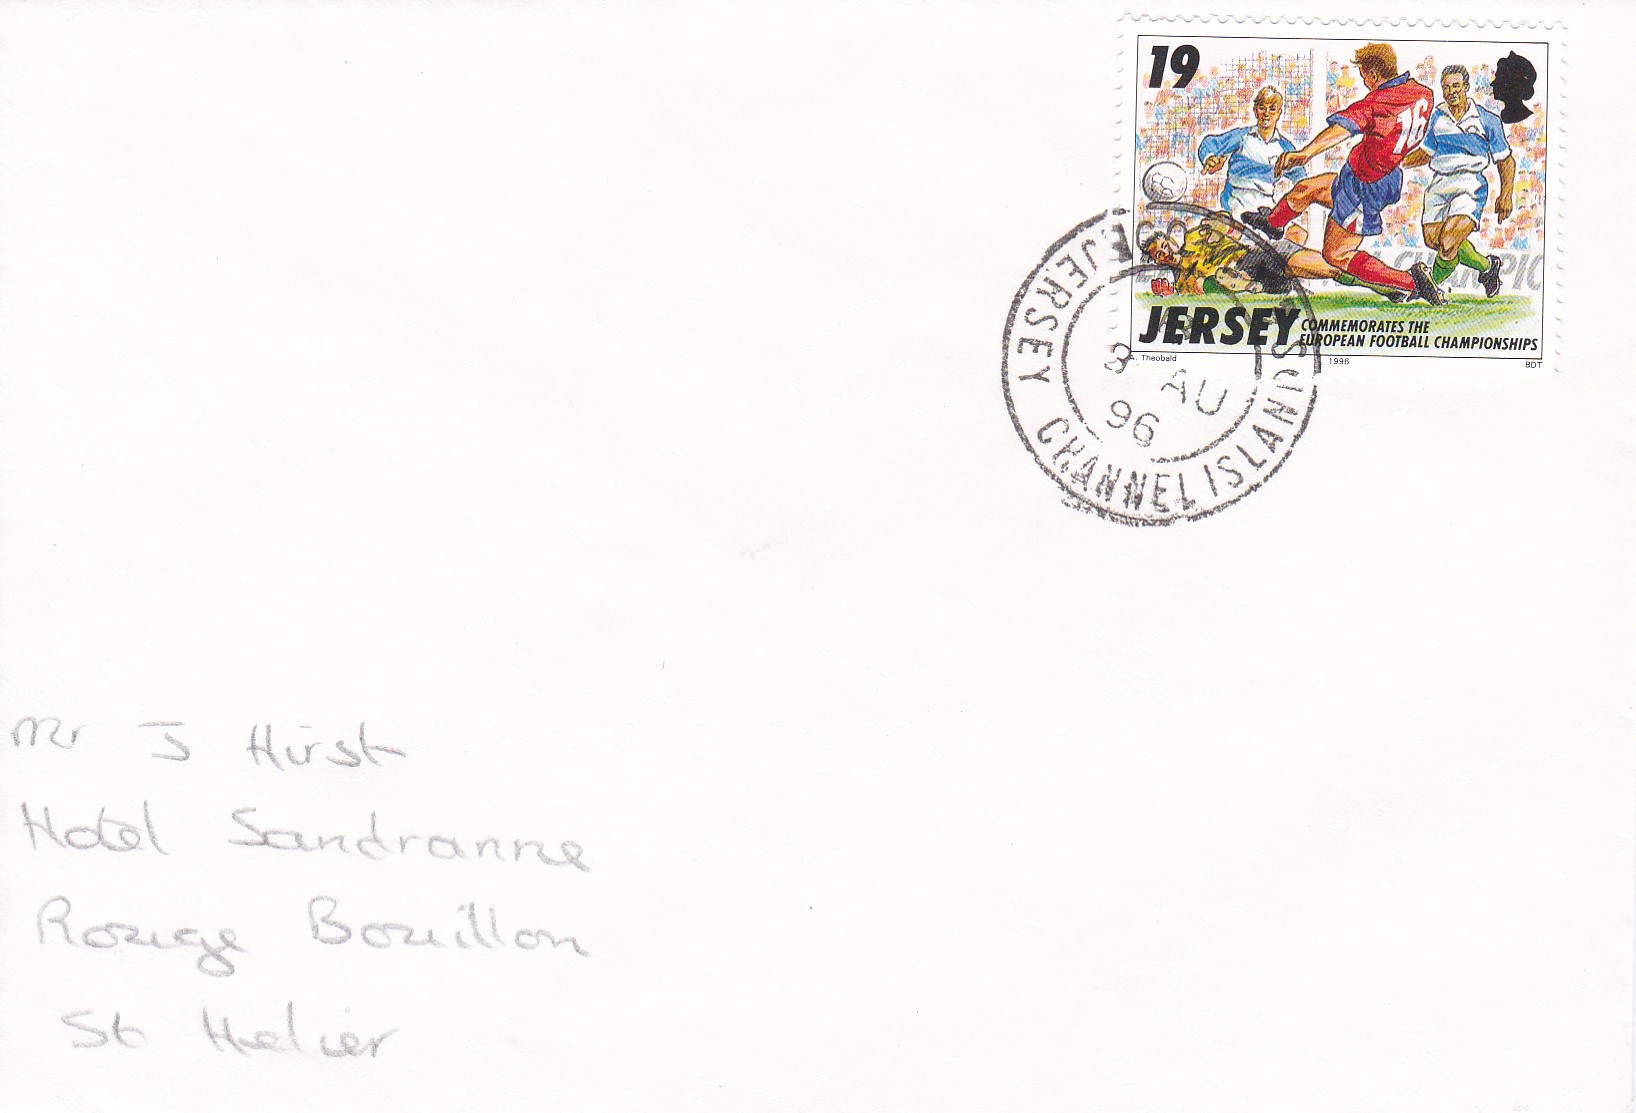 19
16
CHAMPIO
JERSEY COMMEMORATES THE
EUROPEAN FOOTBALL CHAMPIONSHIPS
A. Theobald 1996 BDT
JERSEY CHANNEL ISLANDS
AU
96
Mr J Hirst
Hotel Sandranne
Rouge Bouillon
St Helier